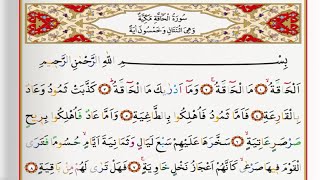 سُورَةُ الْحَاقَّةِ مَكِّيَّةٌ
وَهِيَ اثْنَتَانِ وَخَمْسُونَ اٰيَةً
بِسْمِ اللّٰهِ الرَّحْمٰنِ الرَّحِيمِ
اَلْحَاقَّةُۙ مَا الْحَاقَّةُۚ وَمَٓا اَدْرٰيكَ مَا الْحَاقَّةُۜ كَذَّبَتْ ثَمُودُ وَعَادٌ
بِالْقَارِعَةِ فَاَمَّا ثَمُودُ فَاُهْلِكُوا بِالطَّاغِيَةِ وَاَمَّا عَادٌ فَاُهْلِكُوا بِرِيحٍ
صَرْصَرٍ عَاتِيَةٍۙ سَخَّرَهَا عَلَيْهِمْ سَبْعَ لَيَالٍ وَثَمَانِيَةَ اَيَّامٍۙ حُسُومًا فَتَرَى
الْقَوْمَ فِيهَا صَرْعٰىۙ كَاَنَّهُمْ اَعْجَازُ نَخْلٍ خَاوِيَةٍۚ فَهَلْ تَرٰى لَهُمْ مِنْ بَاقِيَةٍ